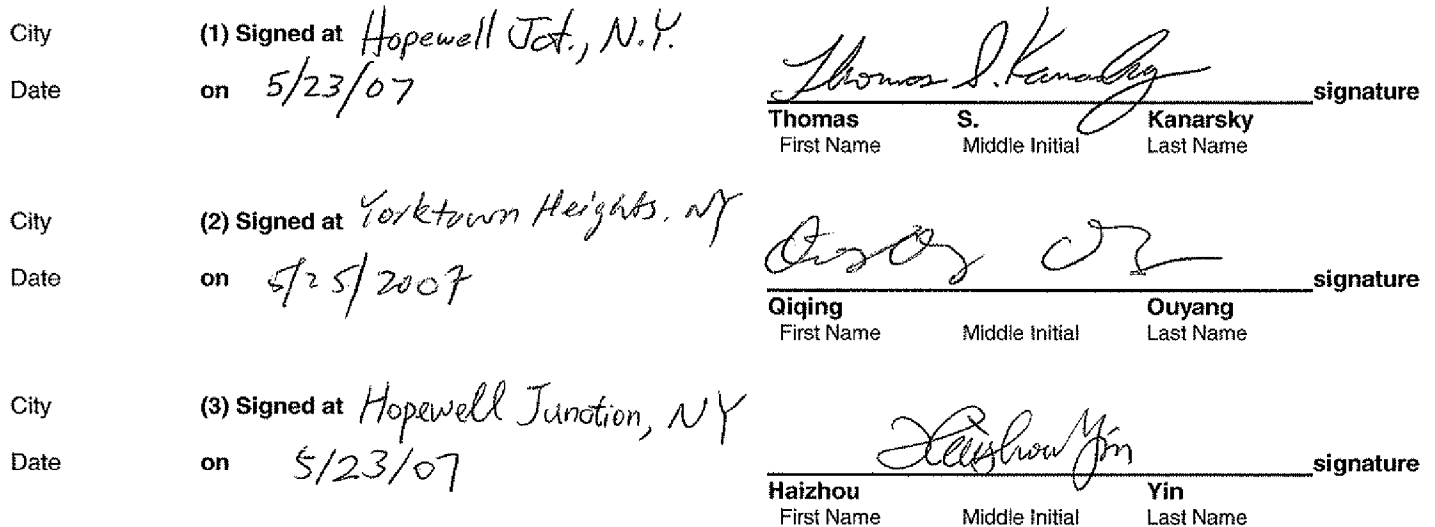 City (1) Signed at Hopewell Jct., N.Y.
Date on 5/23/07
Thomas S. Kanarsky signature
Thomas S. Kanarsky
First Name Middle Initial Last Name
City (2) Signed at Yorktown Heights, NY
Date on 5/25/2007
signature
Qiqing Ouyang
First Name Middle Initial Last Name
City (3) Signed at Hopewell Junction, NY
Date on 5/23/07
Haizhou Yin signature
Haizhou Yin
First Name Middle Initial Last Name